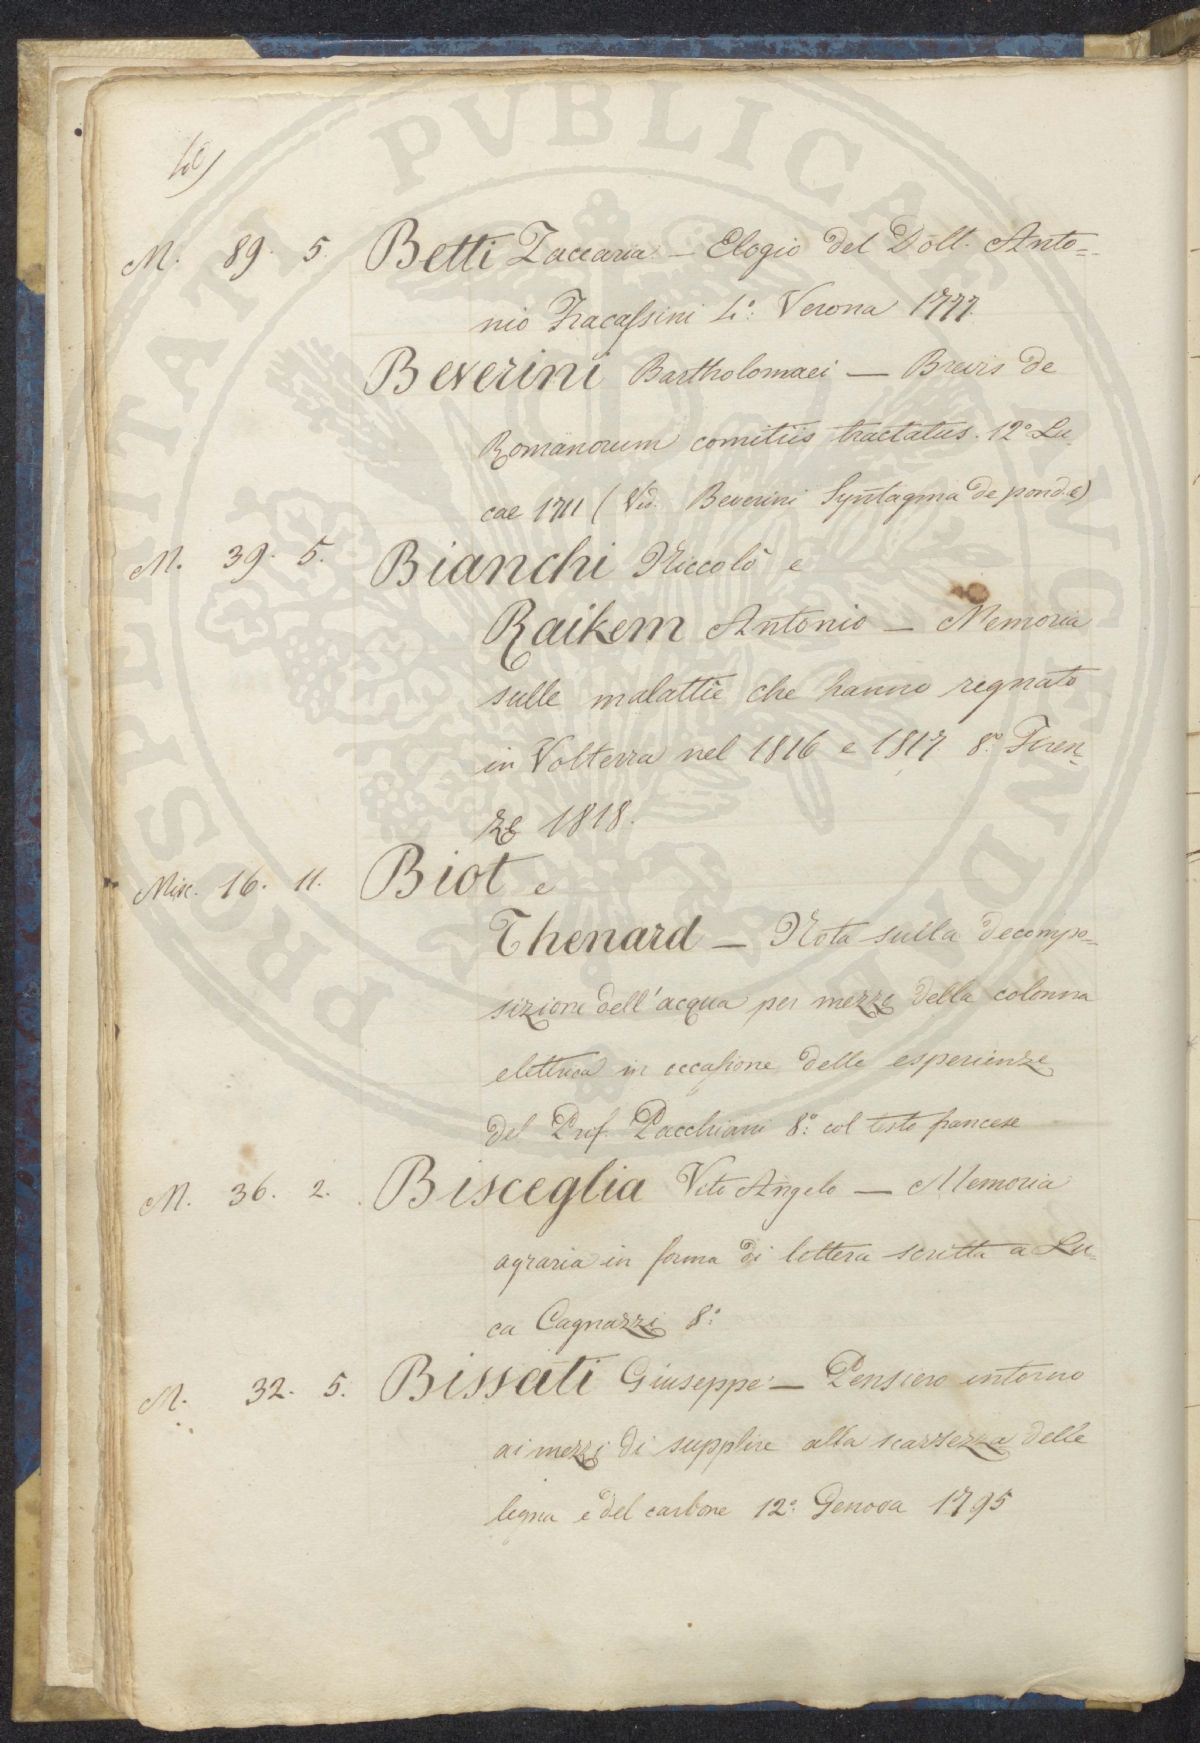 40)
M. 89. 5. Betti Zaccaria — Elogio del Dott. Anto=
nio Fracassini 4.º Verona 1777.
Beverini Bartholomaei — Brevis de
Romanorum comitiis tractatus. 12º Lu
cae 1711 (Vid. Beverini Syntagma de pond. e)
M. 39. 5. Bianchi Niccolò e
Raikem Antonio — Memoria
sulle malattie che hanno regnato
in Volterra nel 1816 e 1817. 8.º Firen
ze 1818.
Misc. 16. 11. Biot e
Thenard — Nota sulla decompo=
sizione dell'acqua per mezzo della colonna
elettrica in occasione delle esperienze
del Prof. Pacchiani 8.º col testo francese
M. 36. 2. Bisceglia Vito Angelo — Memoria
agraria in forma di lettera scritta a Lu=
ca Cagnazzi 8.º
M. 32. 5. Bissati Giuseppe — Pensiero intorno
ai mezzi di supplire alla scarsezza delle
legna e del carbone 12.º Genova 1795
PROSPERITATI PVBLICAE AVGENDAE